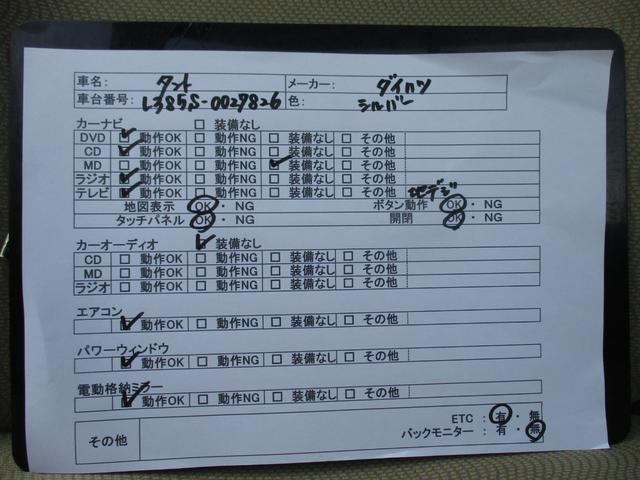 車名: タント メーカー: ダイハツ
車台番号: L385S-0027826 色: シルバー
カーナビ □ 装備なし
DVD ☑ 動作OK □ 動作NG □ 装備なし □ その他
CD ☑ 動作OK □ 動作NG □ 装備なし □ その他
MD □ 動作OK □ 動作NG ☑ 装備なし □ その他
ラジオ ☑ 動作OK □ 動作NG □ 装備なし □ その他
テレビ ☑ 動作OK □ 動作NG □ 装備なし □ その他 地デジ
地図表示 OK ・ NG ボタン動作 OK ・ NG
タッチパネル OK ・ NG 開閉 OK ・ NG
カーオーディオ ☑ 装備なし
CD □ 動作OK □ 動作NG □ 装備なし □ その他
MD □ 動作OK □ 動作NG □ 装備なし □ その他
ラジオ □ 動作OK □ 動作NG □ 装備なし □ その他
エアコン
☑ 動作OK □ 動作NG □ 装備なし □ その他
パワーウィンドウ
☑ 動作OK □ 動作NG □ 装備なし □ その他
電動格納ミラー
☑ 動作OK □ 動作NG □ 装備なし □ その他
その他 ETC : 有 ・ 無
バックモニター : 有 ・ 無